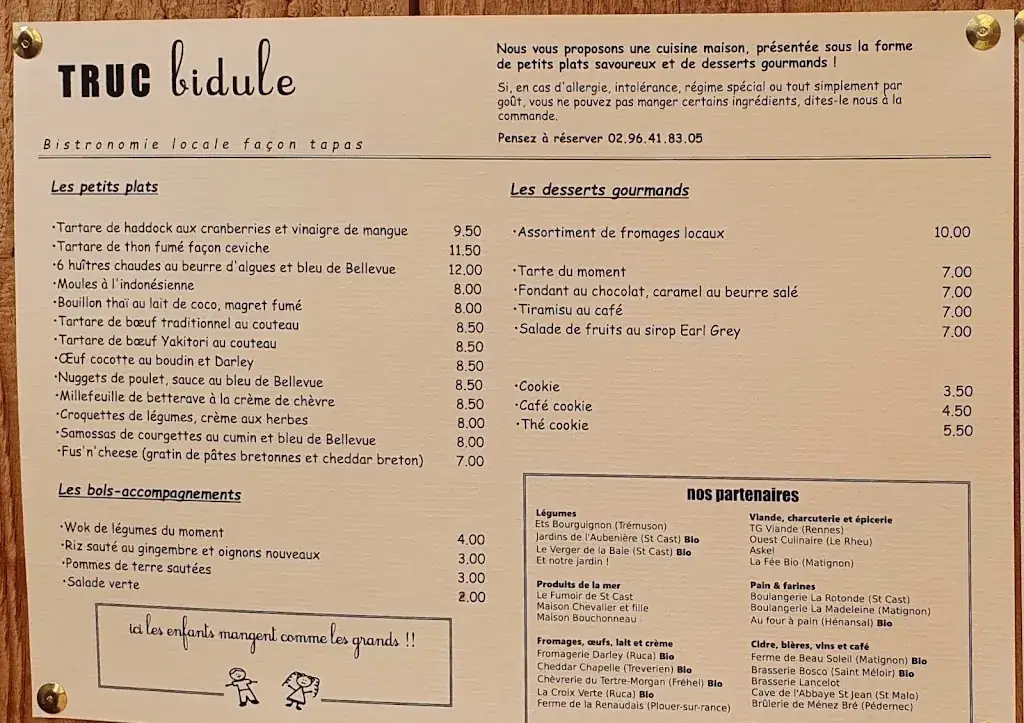 TRUC bidule
Bistronomie locale façon tapas
Nous vous proposons une cuisine maison, présentée sous la forme
de petits plats savoureux et de desserts gourmands !
Si, en cas d'allergie, intolérance, régime spécial ou tout simplement par
goût, vous ne pouvez pas manger certains ingrédients, dites-le nous à la
commande.
Pensez à réserver 02.96.41.83.05
Les petits plats
·Tartare de haddock aux cranberries et vinaigre de mangue 9.50
·Tartare de thon fumé façon ceviche 11.50
·6 huîtres chaudes au beurre d'algues et bleu de Bellevue 12.00
·Moules à l'indonésienne 8.00
·Bouillon thaï au lait de coco, magret fumé 8.00
·Tartare de bœuf traditionnel au couteau 8.50
·Tartare de bœuf Yakitori au couteau 8.50
·Œuf cocotte au boudin et Darley 8.50
·Nuggets de poulet, sauce au bleu de Bellevue 8.50
·Millefeuille de betterave à la crème de chèvre 8.50
·Croquettes de légumes, crème aux herbes 8.00
·Samossas de courgettes au cumin et bleu de Bellevue 8.00
·Fus'n'cheese (gratin de pâtes bretonnes et cheddar breton) 7.00
Les bols-accompagnements
·Wok de légumes du moment 4.00
·Riz sauté au gingembre et oignons nouveaux 3.00
·Pommes de terre sautées 3.00
·Salade verte 2.00
ici les enfants mangent comme les grands !!
Les desserts gourmands
·Assortiment de fromages locaux 10.00
·Tarte du moment 7.00
·Fondant au chocolat, caramel au beurre salé 7.00
·Tiramisu au café 7.00
·Salade de fruits au sirop Earl Grey 7.00
·Cookie 3.50
·Café cookie 4.50
·Thé cookie 5.50
nos partenaires
Légumes
Ets Bourguignon (Trémuson)
Jardins de l'Aubenière (St Cast) Bio
Le Verger de la Baie (St Cast) Bio
Et notre jardin !
Produits de la mer
Le Fumoir de St Cast
Maison Chevalier et fille
Maison Bouchonneau
Fromages, œufs, lait et crème
Fromagerie Darley (Ruca) Bio
Cheddar Chapelle (Treverien) Bio
Chèvrerie du Tertre-Morgan (Fréhel) Bio
La Croix Verte (Ruca) Bio
Ferme de la Renaudais (Plouer-sur-rance)
Viande, charcuterie et épicerie
TG Viande (Rennes)
Ouest Culinaire (Le Rheu)
Askel
La Fée Bio (Matignon)
Pain & farines
Boulangerie La Rotonde (St Cast)
Boulangerie La Madeleine (Matignon)
Au four à pain (Hénansal) Bio
Cidre, bières, vins et café
Ferme de Beau Soleil (Matignon) Bio
Brasserie Bosco (Saint Méloir) Bio
Brasserie Lancelot
Cave de l'Abbaye St Jean (St Malo)
Brûlerie de Ménez Bré (Pédernec)